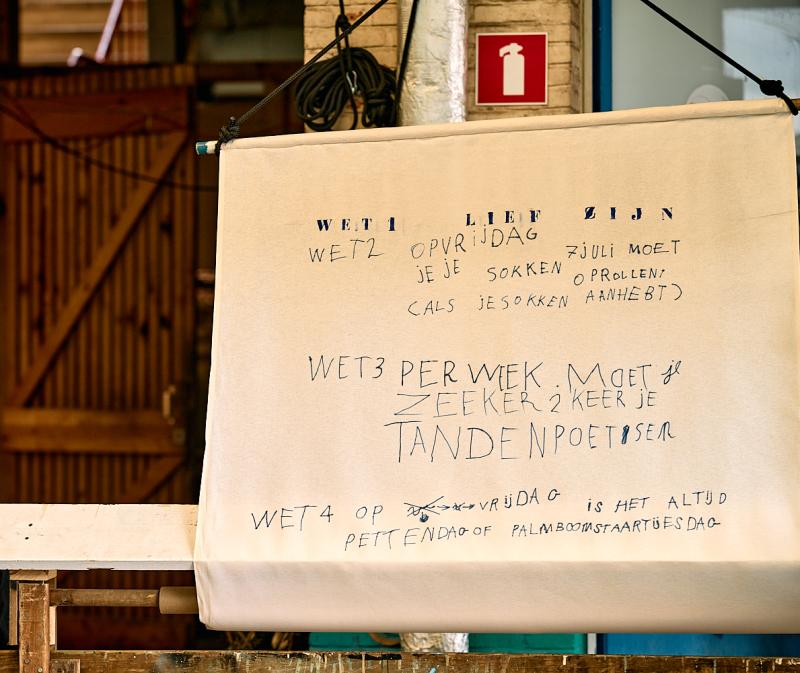 WET 1 LIEF ZIJN
WET2 OPVRIJDAG 7JULI MOET
JE JE SOKKEN OPROLLEN!
(ALS JE SOKKEN AANHEBT)
WET3 PER WIEK. MOET je
ZEEKER 2 KEER JE
TANDENPOETISEN
WET4 OP VRIJDAG IS HET ALTIJD
PETTENDAG OF PALMBOOMSTAARTIJESDAG